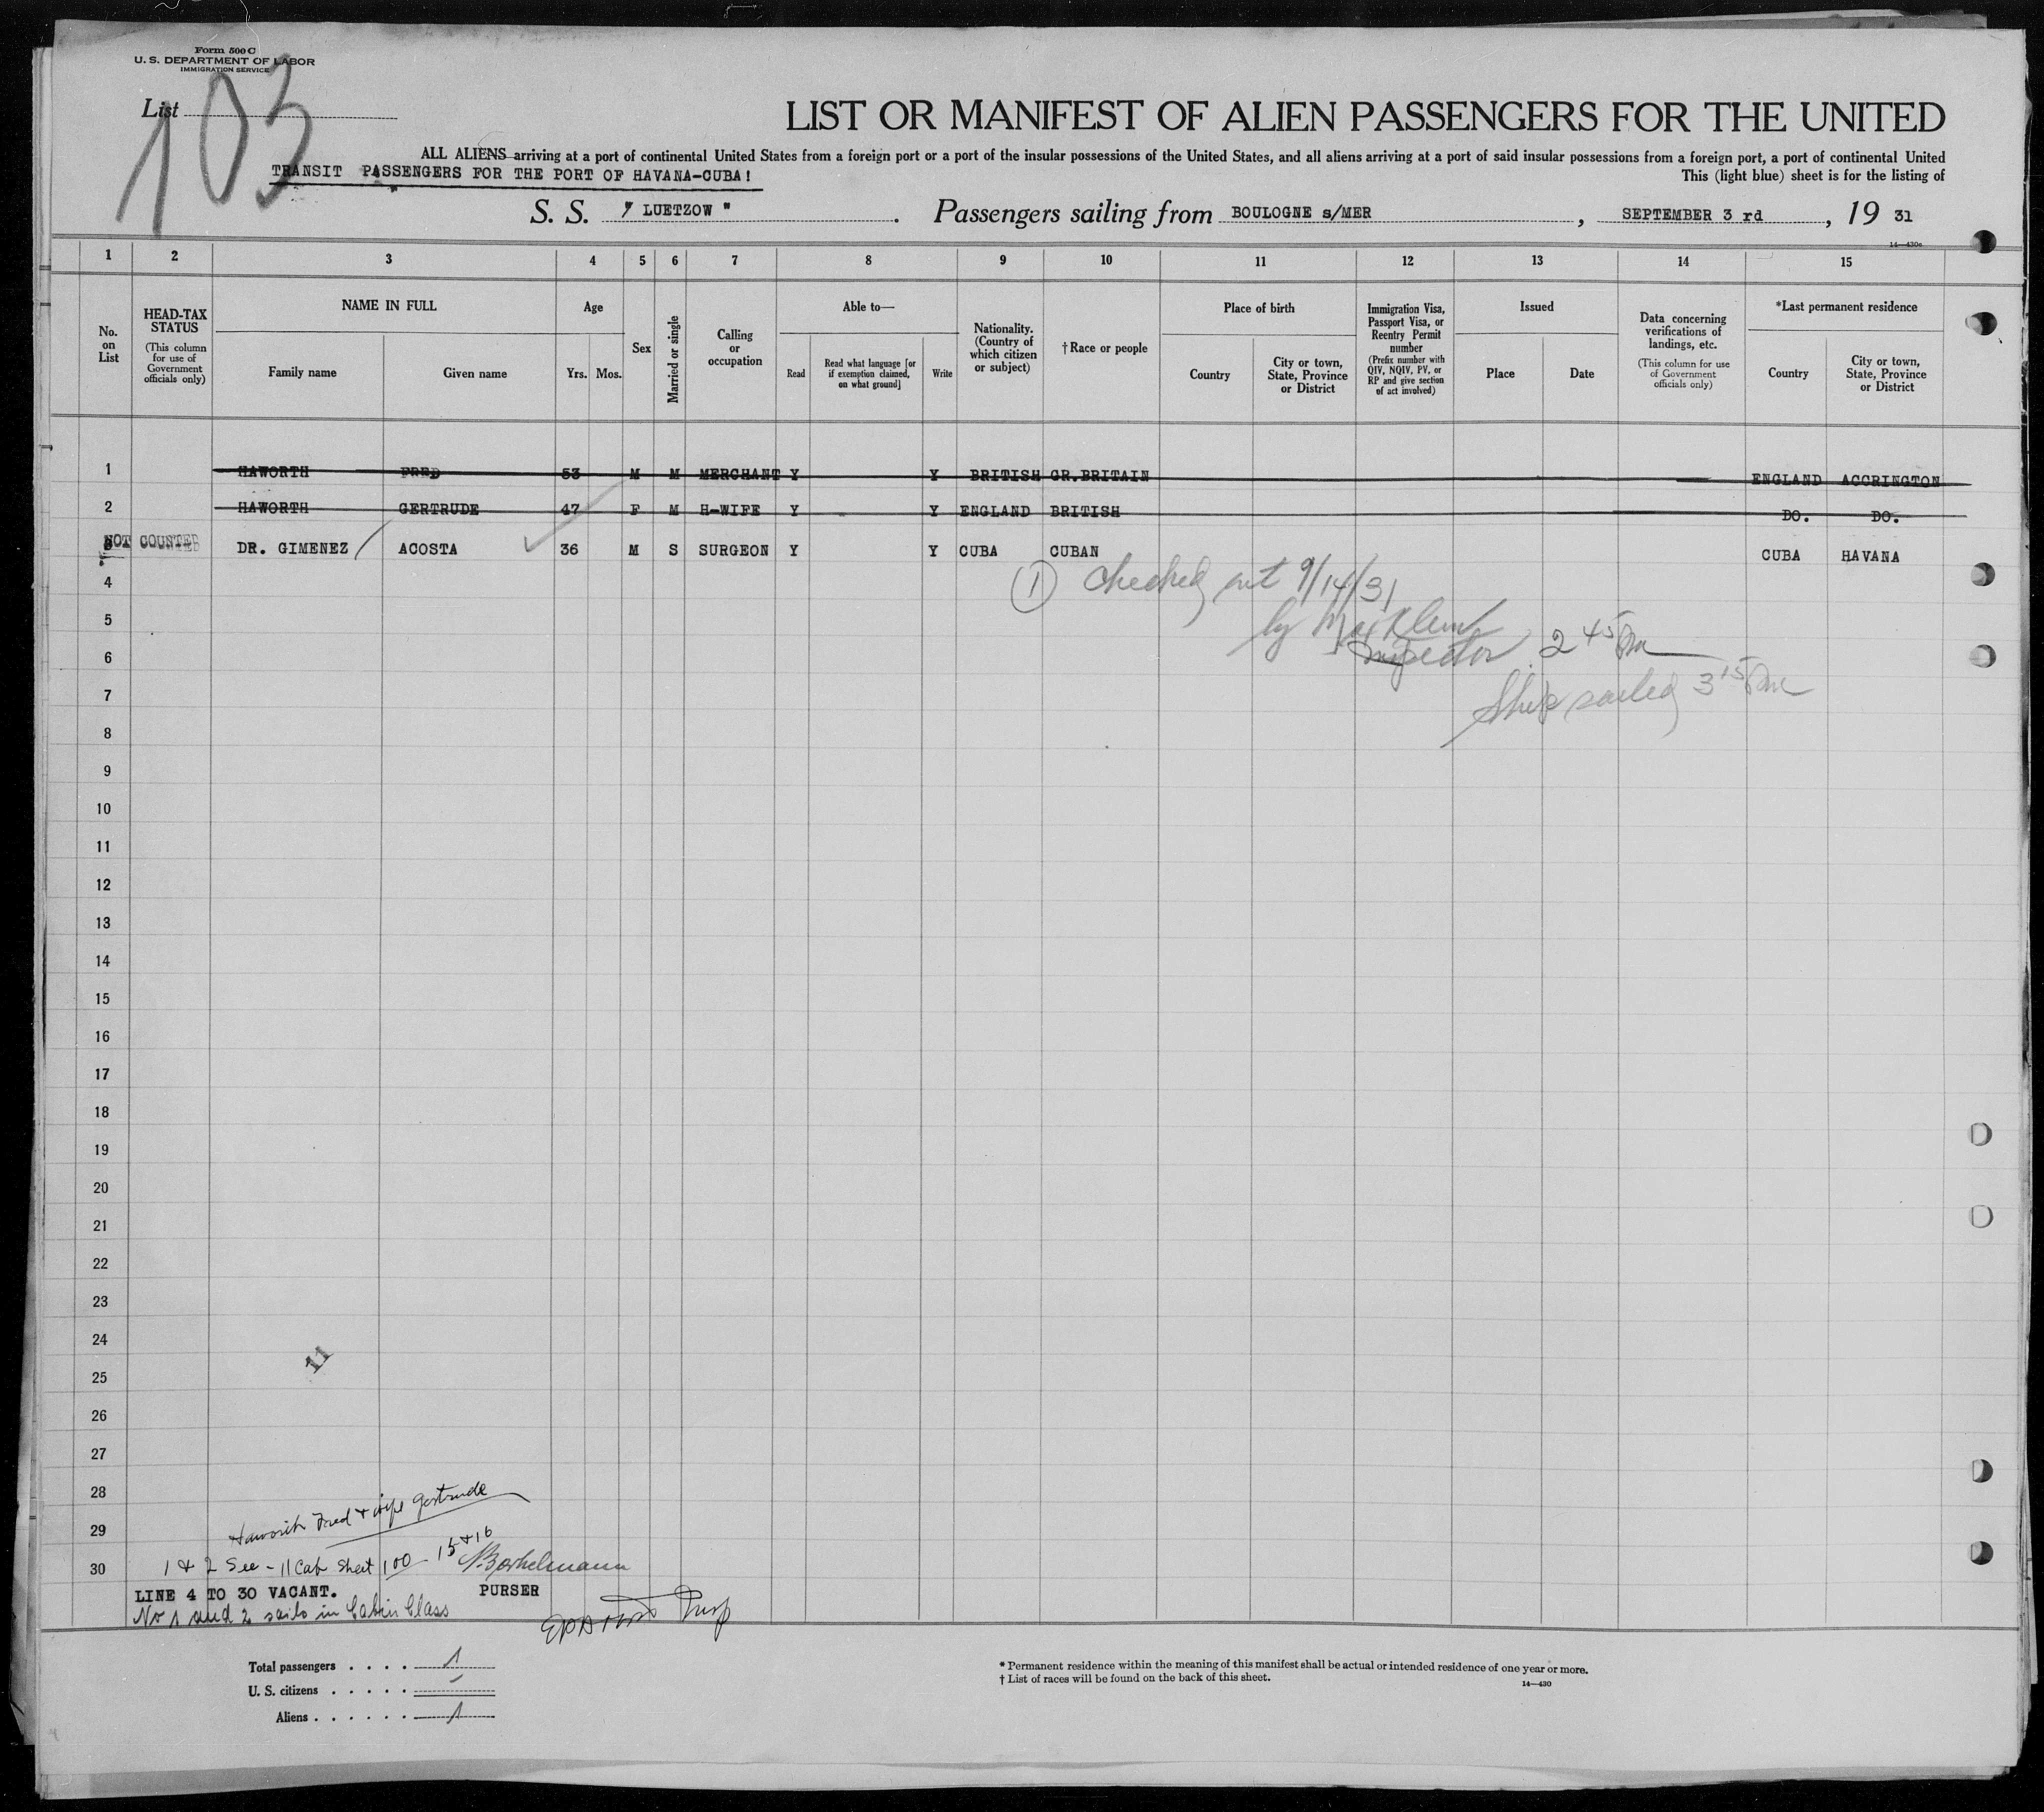 Form 500 C
U. S. DEPARTMENT OF LABOR
IMMIGRATION SERVICE
List
103
LIST OR MANIFEST OF ALIEN PASSENGERS FOR THE UNITED
ALL ALIENS arriving at a port of continental United States from a foreign port or a port of the insular possessions of the United States, and all aliens arriving at a port of said insular possessions from a foreign port, a port of continental United
TRANSIT PASSENGERS FOR THE PORT OF HAVANA-CUBA!
This (light blue) sheet is for the listing of
S. S. " LUETZOW " . Passengers sailing from BOULOGNE s/MER , SEPTEMBER 3 rd , 19 31
14—430c
1 2 3 4 5 6 7 8 9 10 11 12 13 14 15
No. on List
HEAD-TAX STATUS
(This column for use of Government officials only)
NAME IN FULL
Family name
Given name
Age
Yrs. Mos.
Sex
Married or single
Calling or occupation
Able to—
Read
Read what language [or if exemption claimed, on what ground]
Write
Nationality. (Country of which citizen or subject)
†Race or people
Place of birth
Country
City or town, State, Province or District
Immigration Visa, Passport Visa, or Reentry Permit number
(Prefix number with QIV, NQIV, PV, or RP and give section of act involved)
Issued
Place
Date
Data concerning verifications of landings, etc.
(This column for use of Government officials only)
*Last permanent residence
Country
City or town, State, Province or District
1 HAWORTH FRED 53 M M MERCHANT Y Y BRITISH GR.BRITAIN ENGLAND ACCRINGTON
2 HAWORTH GERTRUDE 47 F M H-WIFE Y Y ENGLAND BRITISH DO. DO.
3 NOT COUNTED DR. GIMENEZ ACOSTA 36 M S SURGEON Y Y CUBA CUBAN CUBA HAVANA
4
1 checked out 9/14/31
5
by Max Klein
6
Inspector 2 45 Pm
7
Ship sailed 3 15 Pm
8
9
10
11
12
13
14
15
16
17
18
19
20
21
22
23
24
11
25
26
27
28
29
Haworth Fred & wife Gertrude
30
1 & 2 See - 11 Cab Sheet 100 - 15 & 16
LINE 4 TO 30 VACANT.
PURSER
No 1 and 2 sails in Cabin Class
Insp
Total passengers . . . . 1
U. S. citizens . . . . . -
Aliens . . . . . . 1
* Permanent residence within the meaning of this manifest shall be actual or intended residence of one year or more.
† List of races will be found on the back of this sheet.
14—430